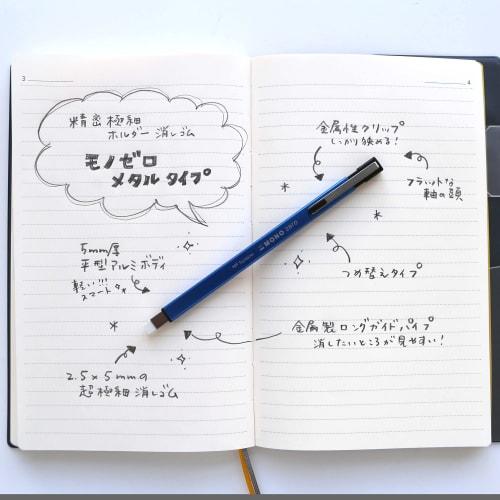 3
精密極細
ホルダー消しゴム
モノゼロ
メタルタイプ
5mm厚
平型アルミボディ
軽い!!!
2.5×5mmの
超極細消しゴム
4
金属性クリップ
しっかり挟める!
フラットな
軸の頭
つめ替えタイプ
金属製ロングガイドパイプ
消したいところが見やすい!
Tombow MONO zero